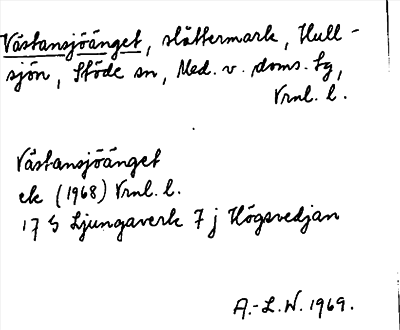 Västansjöänget, slåttermark, Hull-
sjön, Stöde sn, Med. v. doms. tg,
Vrnl. l.
Västansjöänget
ek (1968) Vrnl. l.
17 G Ljungaverk 7 j Högsvedjan
A.-L.W. 1969.